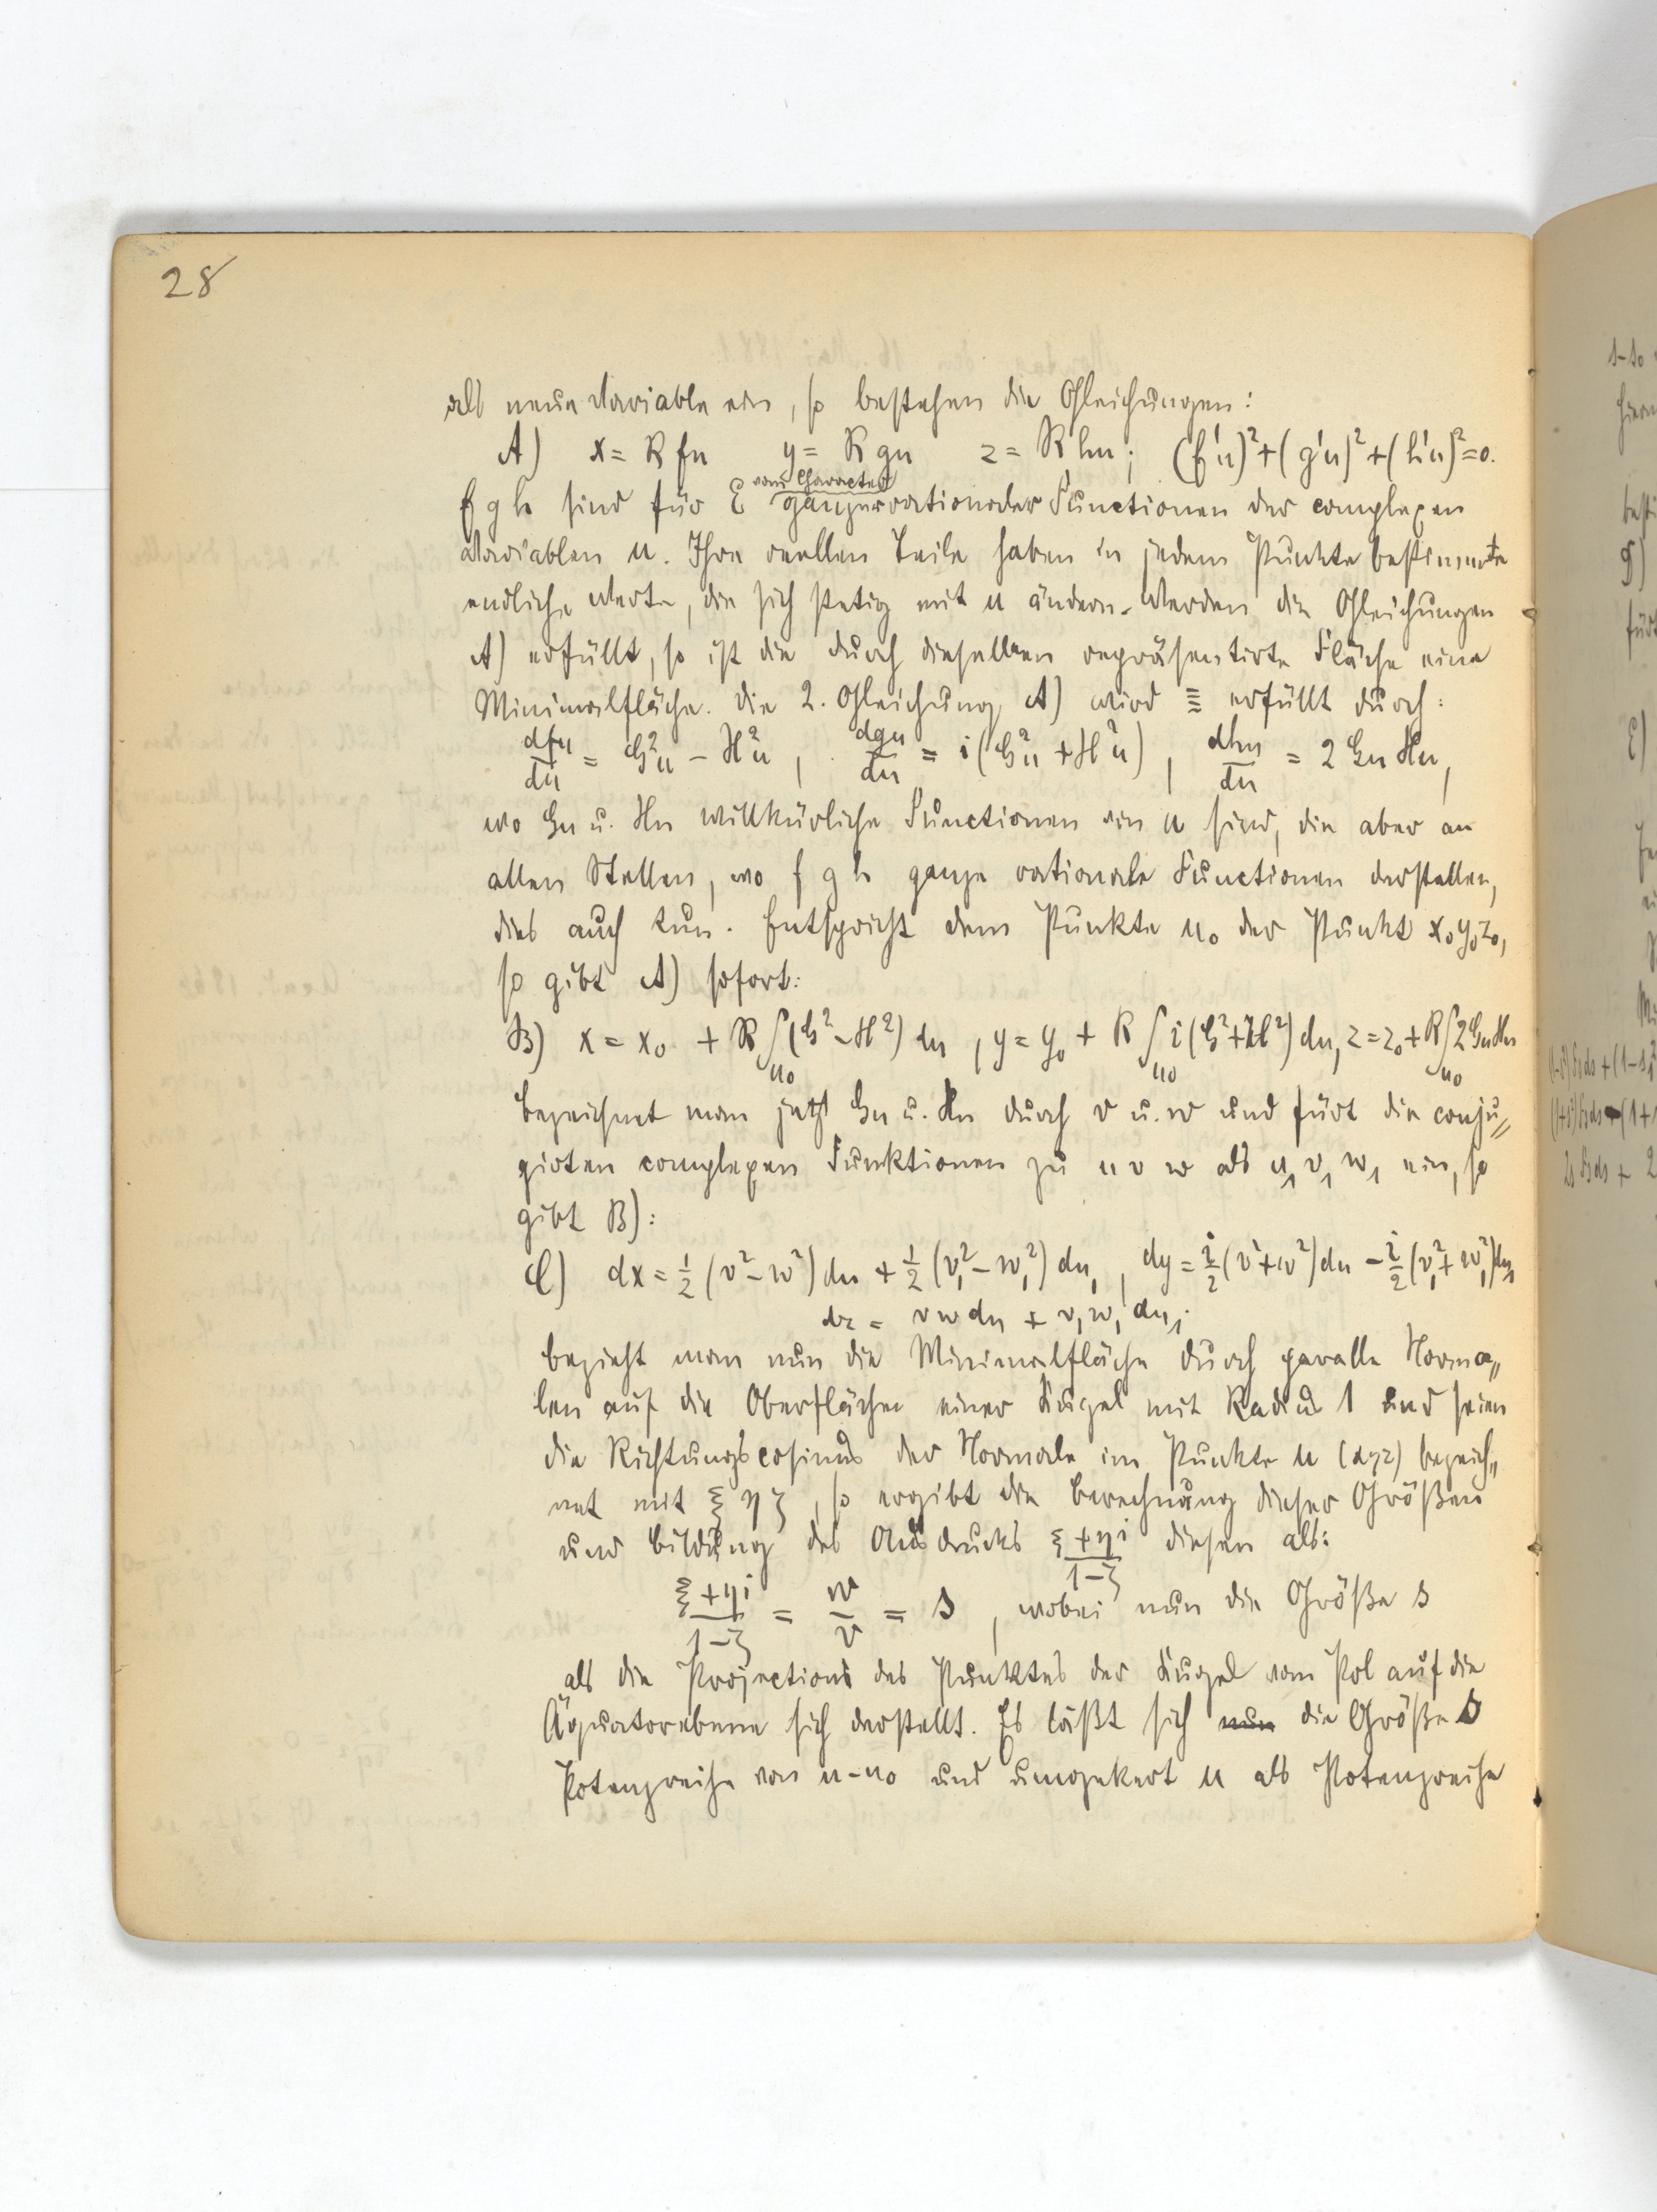 28
als neue Variable ein, so bestehen die Gleichungen:
A) x = R fu y = R gu z = R hu; (f'u)² + (g'u)² + (h'u)² = 0.
vom Character
f g h sind für ganzer rationaler Functionen der complexen
Variablen u. Ihre reellen Teile haben in jedem Punkte bestimmte
endliche Werte, die sich stetig mit u ändern. Werden die Gleichungen
A) erfüllt, so ist die durch dieselben repräsentirte Fläche eine
Minimalfläche. Die 2. Gleichung A) wird ≡ erfüllt durch:
dfu/du = G²u − H²u, dgu/du = i(G²u + H²u), dhu/du = 2 Gu Hu,
wo Gu u. Hu willkürliche Functionen von u sind, die aber an
allen Stellen, wo f g h ganze rationale Functionen darstellen,
dies auch tun. Entspricht dem Punkte u₀ der Punkt x₀y₀z₀,
so gibt A) sofort:
B) x = x₀ + R∫(G² − H²) du, y = y₀ + R∫i(G² + H²) du, z = z₀ + R∫2GuHu
u₀ u₀ u₀
Bezeichnet man jetzt Gu u. Hu durch v u. w und fürt die conju„
girten complexen Funktionen zu u v w als u₁ v₁ w₁ ein, so
gibt B):
C) dx = ½ (v² − w²) du + ½ (v₁² − w₁²) du₁, dy = i/2 (v² + w²) du − i/2 (v₁² + w₁²) du₁
dz = v w du + v₁ w₁ du₁.
Bezieht man nun die Minimalfläche durch paralle Norma„
len auf die Oberfläche einer Kugel mit Radius 1 und seien
die Richtungscosinus der Normale im Punkte u (xyz) bezeich„
net mit ξ η ζ, so ergibt die Berechnung dieser Größen
und Bildung des Ausdrucks (ξ + ηi)/(1 − ζ) diesen als:
(ξ + ηi)/(1 − ζ) = w/v = s, wobei nun die Größe s
als die Projections des Punktes der Kugel vom Pol auf die
Äquatorebene sich darstellt. Es läßt sich nun die Größe s
Potenzreihe von u − u₀ und umgekert u als Potenzreihe